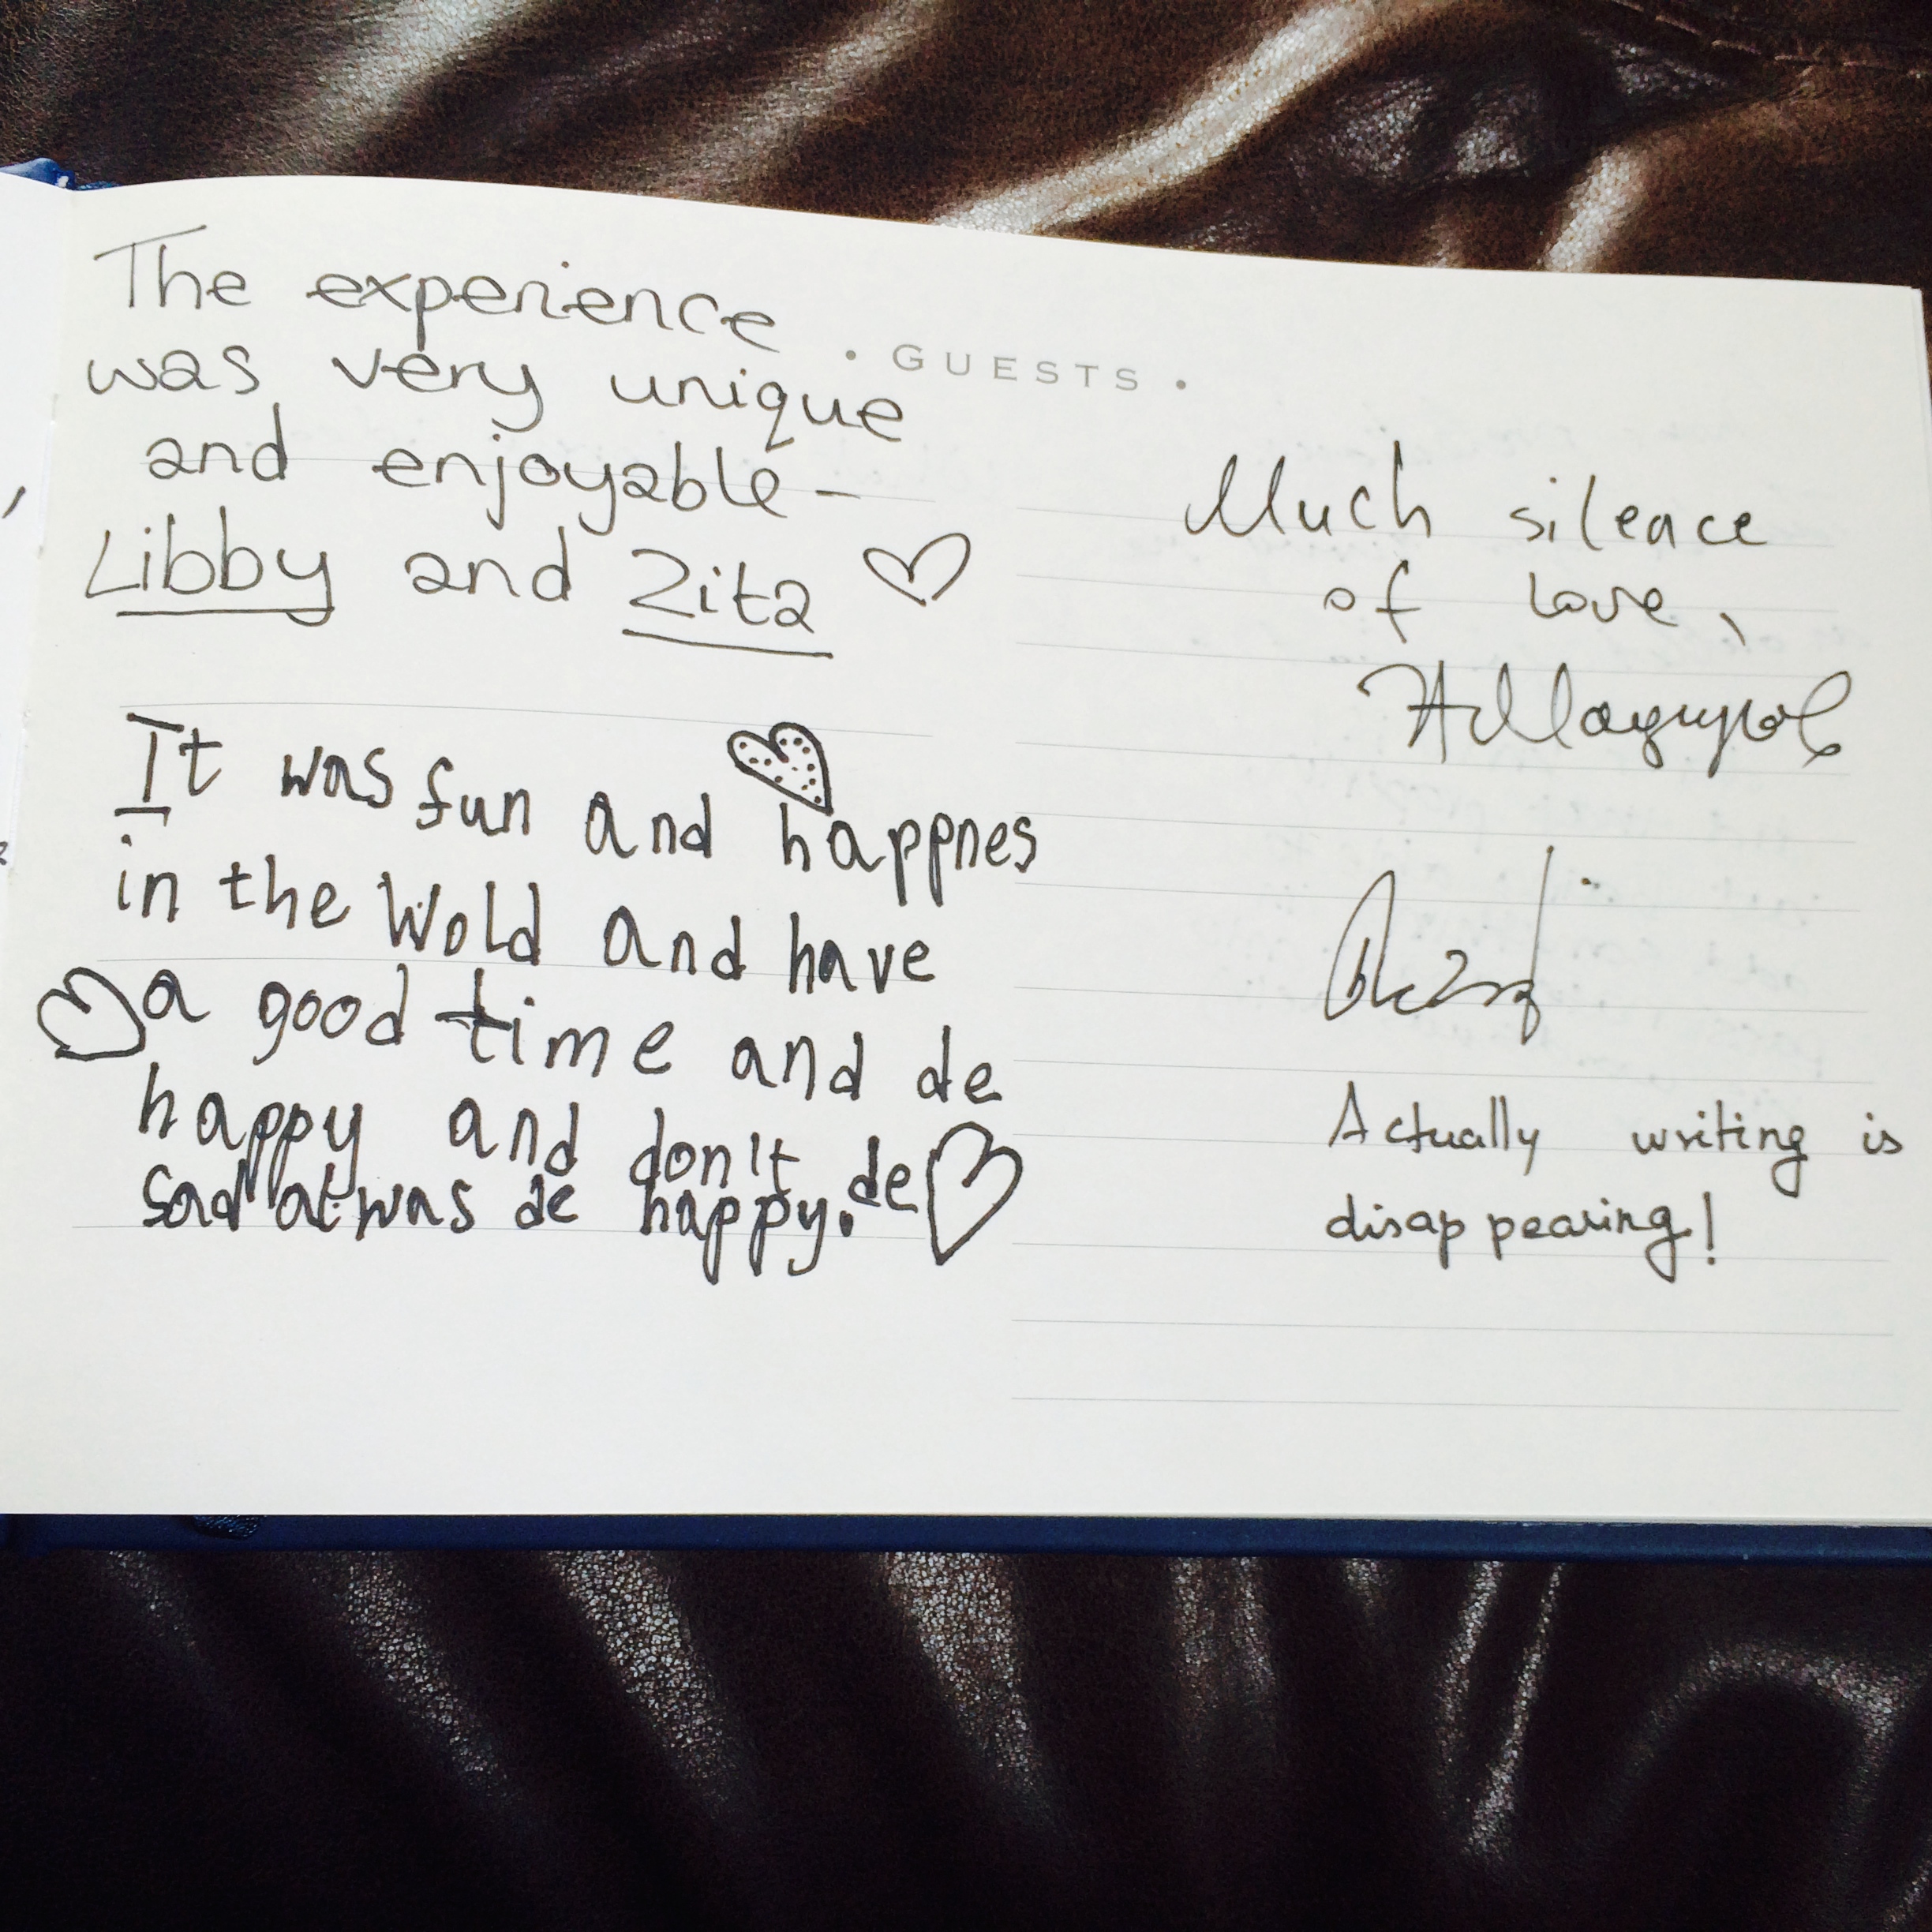 The experience
was very unique
and enjoyable -
Libby and Zita
It was fun and happnes
in the Wold and have
a good time and de
happy and don't de
sad at was de happy.
• GUESTS •
Much sileace
of love,
Actually writing is
disappearing!